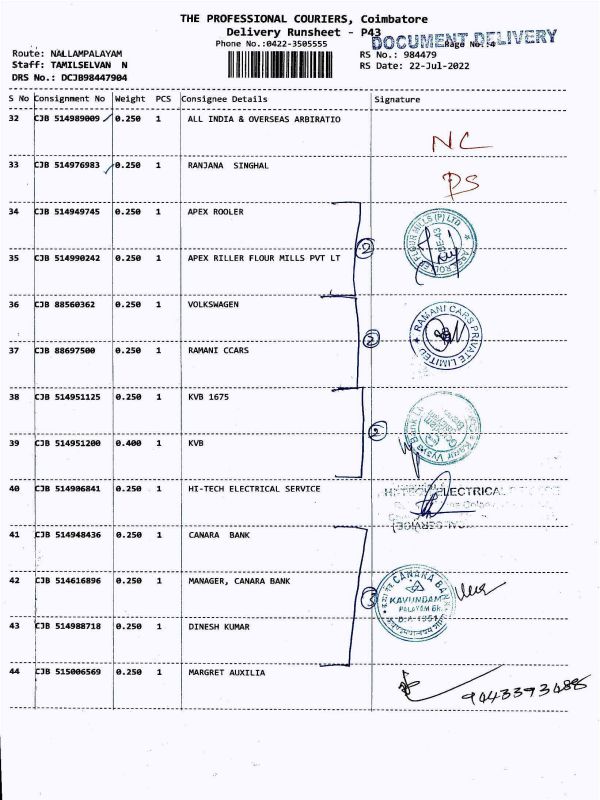 THE PROFESSIONAL COURIERS, Coimbatore
Delivery Runsheet - P43
DOCUMENT DELIVERY
Phone No.:0422-3505555
Page No.:4
Route: NALLAMPALAYAM
RS No.: 984479
Staff: TAMILSELVAN N
RS Date: 22-Jul-2022
DRS No.: DCJB98447904
S No Consignment No Weight PCS Consignee Details Signature
32 CJB 514989009 0.250 1 ALL INDIA & OVERSEAS ARBIRATIO
NC
33 CJB 514976983 0.250 1 RANJANA SINGHAL
PS
34 CJB 514949745 0.250 1 APEX ROOLER
FLOUR MILLS (P) LTD
2
35 CJB 514990242 0.250 1 APEX RILLER FLOUR MILLS PVT LT
36 CJB 88560362 0.250 1 VOLKSWAGEN
RAMANI CARS PRIVATE LIMITED
2
37 CJB 88697500 0.250 1 RAMANI CCARS
38 CJB 514951125 0.250 1 KVB 1675
2
39 CJB 514951200 0.400 1 KVB
40 CJB 514906841 0.250 1 HI-TECH ELECTRICAL SERVICE
ELECTRICAL
41 CJB 514948436 0.250 1 CANARA BANK
42 CJB 514616896 0.250 1 MANAGER, CANARA BANK
3
CANARA BANK
KAVUNDAM
PALAYAM BR.
43 CJB 514988718 0.250 1 DINESH KUMAR
44 CJB 515006569 0.250 1 MARGRET AUXILIA
9443393488